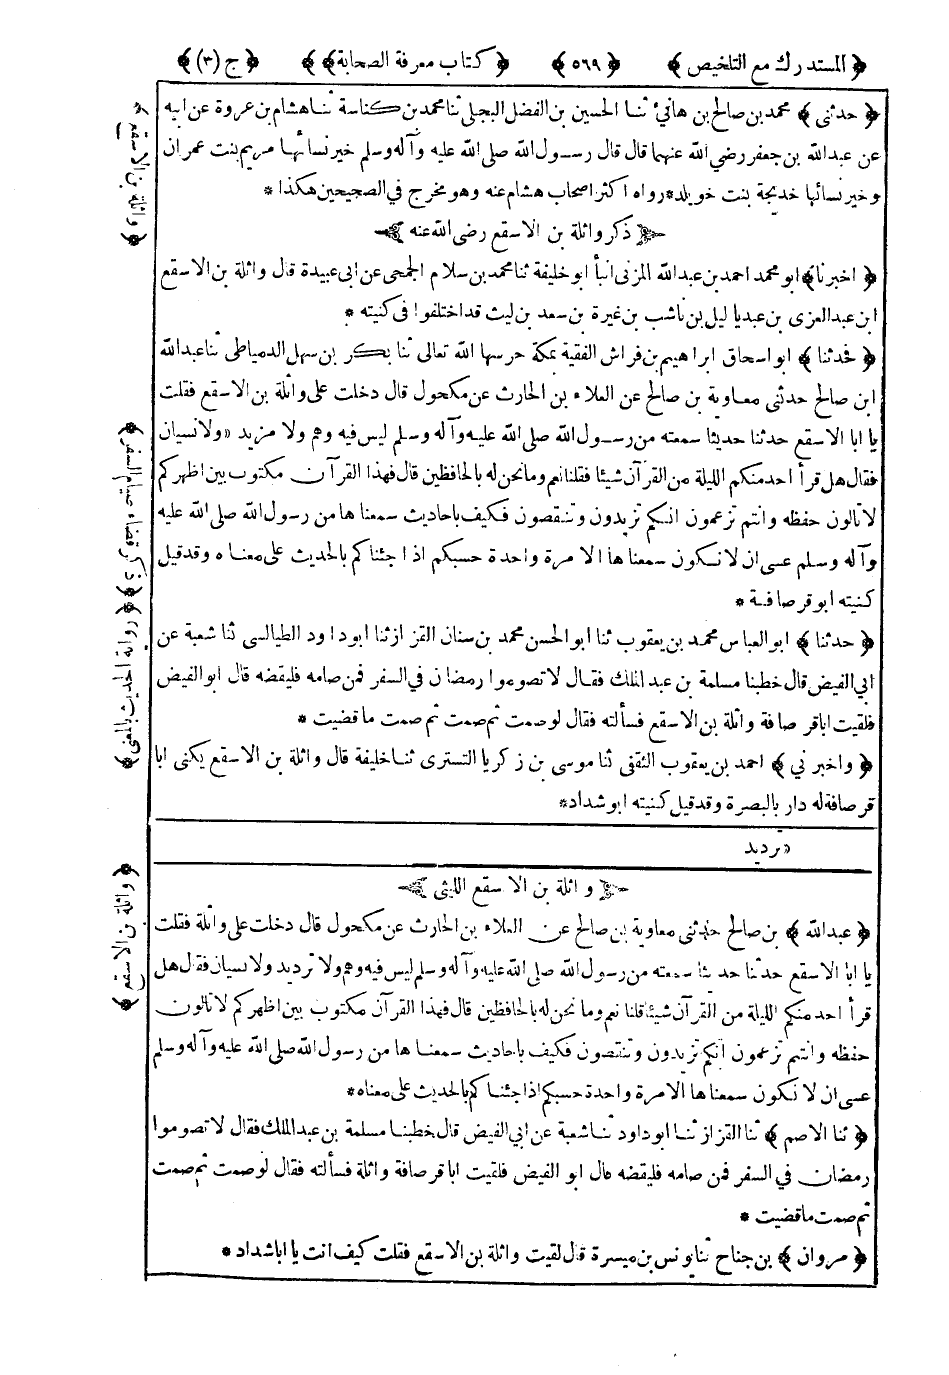 ﴿ المستدرك مع التلخيص ﴾ ﴿ ٥٦٩ ﴾ ﴿ كتاب معرفة الصحابة ﴾ ﴿ ج (٣) ﴾
﴿ حدثنى ﴾ محمد بن صالح بن هانئ ثنا الحسين بن الفضل البجلى ثنا محمد بن كناسة ثنا هشام بن عروة عن ابيه
عن عبدالله بن جعفر رضي الله عنهما قال قال رسول الله صلى الله عليه وآله وسلم خير نسائها مريم بنت عمران
وخير نسائها خديجة بنت خويلد * رواه اكثر اصحاب هشام عنه وهو مخرج في الصحيحين هكذا *
ذكر واثلة بن الاسقع رضى الله عنه
﴿ اخبرنا ﴾ ابو محمد احمد بن عبدالله المزنى انبأ ابو خليفة ثنا محمد بن سلام الجمحى عن ابى عبيدة قال واثلة بن الاسقع
ابن عبد العزى بن عبديا ليل بن ناشب بن غيرة بن سعد بن ليث قد اختلفوا فى كنيته *
﴿ فحدثنا ﴾ ابو اسحاق ابراهيم بن فراش الفقيه بمكة حرسها الله تعالى ثنا بكر بن سهل الدمياطى ثنا عبدالله
ابن صالح حدثنى معاوية بن صالح عن العلاء بن الحارث عن مكحول قال دخلت على واثلة بن الاسقع فقلت
يا ابا الاسقع حدثنا حديثا سمعته من رسول الله صلى الله عليه وآله وسلم ليس فيه وهم ولا مزيد «ولا نسيان
فقال هل قرأ احد منكم الليلة من القرآن شيئا فقلنا نعم وما نحن له بالحافظين قال فهذا القرآن مكتوب بين اظهركم
لا تالون حفظه وانتم تزعمون انكم تزيدون وتنقصون فكيف باحاديث سمعناها من رسول الله صلى الله عليه
وآله وسلم عسى ان لا نكون سمعناها الا مرة واحدة حسبكم اذا جئناكم بالحديث على معناه وقد قيل
كنيته ابو قرصافة *
﴿ حدثنا ﴾ ابو العباس محمد بن يعقوب ثنا ابو الحسن محمد بن سنان القزاز ثنا ابو داود الطيالسى ثنا شعبة عن
ابي الفيض قال خطبنا مسلمة بن عبد الملك فقال لا تصوموا رمضان في السفر فمن صامه فليقضه قال ابو الفيض
فلقيت ابا قرصافة واثلة بن الاسقع فسألته فقال لو صمت ثم صمت ثم صمت ما قضيت *
﴿ واخبرني ﴾ احمد بن يعقوب الثقفى ثنا موسى بن زكريا التسترى ثنا خليفة قال واثلة بن الاسقع يكنى ابا
قرصافة له دار بالبصرة وقد قيل كنيته ابو شداد *
«ترديد
واثلة بن الاسقع الليثى
﴿ عبدالله ﴾ بن صالح حدثنى معاوية بن صالح عن العلاء بن الحارث عن مكحول قال دخلت على واثلة فقلت
يا ابا الاسقع حدثنا حديثا سمعته من رسول الله صلى الله عليه وآله وسلم ليس فيه وهم ولا ترديد ولا نسيان فقال هل
قرأ احد منكم الليلة من القرآن شيئا قلنا نعم وما نحن له بالحافظين قال فهذا القرآن مكتوب بين اظهركم لا تالون
حفظه وانتم تزعمون انكم تزيدون وتنقصون فكيف باحاديث سمعناها من رسول الله صلى الله عليه وآله وسلم
عسى ان لا نكون سمعناها الا مرة واحدة حسبكم اذا جئناكم بالحديث على معناه *
﴿ ثنا الاصم ﴾ ثنا القزاز ثنا ابو داود ثنا شعبة عن ابي الفيض قال خطبنا مسلمة بن عبد الملك فقال لا تصوموا
رمضان في السفر فمن صامه فليقضه قال ابو الفيض فلقيت ابا قرصافة واثلة فسألته فقال لو صمت ثم صمت
ثم صمت ما قضيت *
﴿ مروان ﴾ بن جناح ثنا يونس بن ميسرة قال لقيت واثلة بن الاسقع فقلت كيف انت يا ابا شداد *
﴿ واثلة بن الاسقع ﴾
﴿ ذكر قضاء صيام السفر ﴾
﴿ رواية الحديث بالمعنى ﴾
﴿ واثلة بن الاسقع ﴾